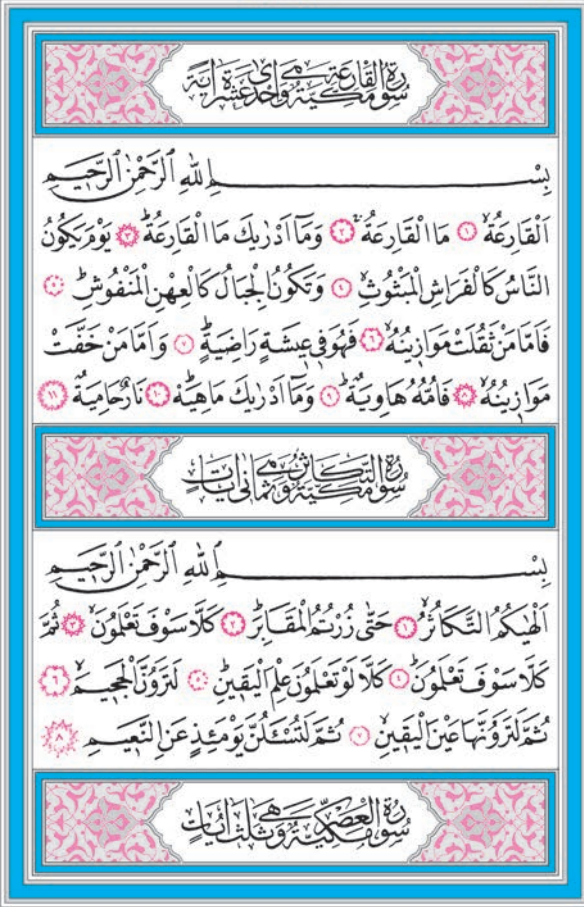 سُورَةُ الْقَارِعَةِ مَكِّيَّةٌ وَهِيَ اِحْدٰى عَشْرَةَ اٰيَةً
بِسْمِ اللّٰهِ الرَّحْمٰنِ الرَّحٖيمِ
اَلْقَارِعَةُۙ ١ مَا الْقَارِعَةُۚ ٢ وَمَٓا اَدْرٰيكَ مَا الْقَارِعَةُۜ ٣ يَوْمَ يَكُونُ
النَّاسُ كَالْفَرَاشِ الْمَبْثُوثِۙ ٤ وَتَكُونُ الْجِبَالُ كَالْعِهْنِ الْمَنْفُوشِۜ ٥
فَاَمَّا مَنْ ثَقُلَتْ مَوَازٖينُهُۙ ٦ فَهُوَ فٖى عٖيشَةٍ رَاضِيَةٍۜ ٧ وَاَمَّا مَنْ خَفَّتْ
مَوَازٖينُهُۙ ٨ فَاُمُّهُ هَاوِيَةٌۜ ٩ وَمَٓا اَدْرٰيكَ مَاهِيَهْۜ ١٠ نَارٌ حَامِيَةٌ ١١
سُورَةُ التَّكَاثُرِ مَكِّيَّةٌ وَهِيَ ثَمَانِي اٰيَاتٍ
بِسْمِ اللّٰهِ الرَّحْمٰنِ الرَّحٖيمِ
اَلْهٰيكُمُ التَّكَاثُرُۙ ١ حَتّٰى زُرْتُمُ الْمَقَابِرَۜ ٢ كَلَّا سَوْفَ تَعْلَمُونَۙ ٣ ثُمَّ
كَلَّا سَوْفَ تَعْلَمُونَۜ ٤ كَلَّا لَوْ تَعْلَمُونَ عِلْمَ الْيَقٖينِۜ ٥ لَتَرَوُنَّ الْجَحٖيمَۙ ٦
ثُمَّ لَتَرَوُنَّهَا عَيْنَ الْيَقٖينِۙ ٧ ثُمَّ لَتُسْـَٔلُنَّ يَوْمَئِذٍ عَنِ النَّعٖيمِ ٨
سُورَةُ الْعَصْرِ مَكِّيَّةٌ وَهِيَ ثَلٰثُ اٰيَاتٍ